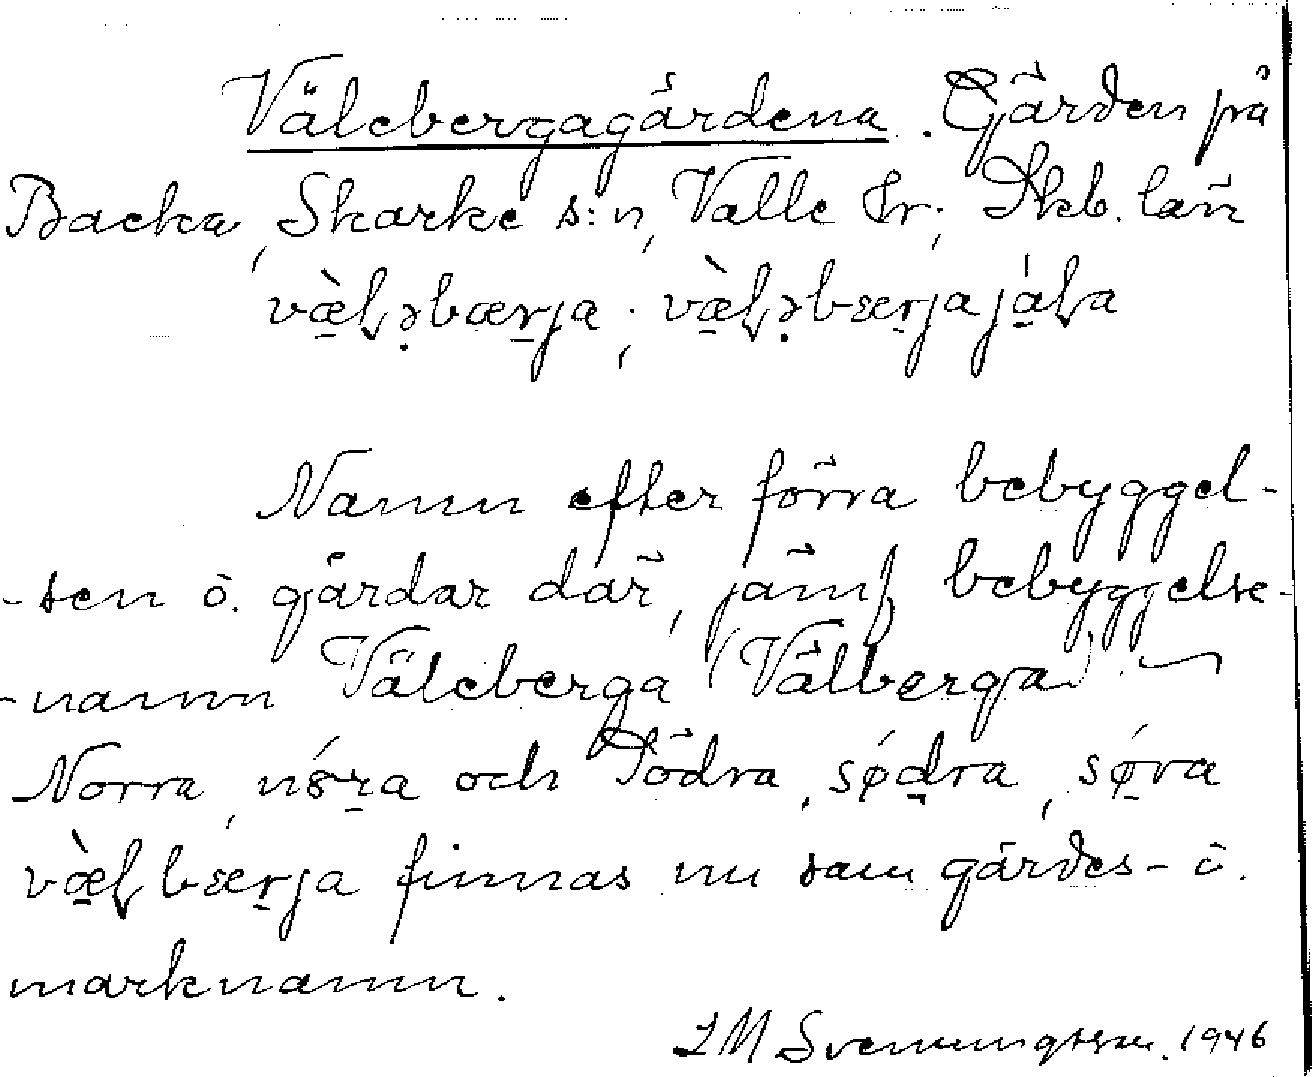 Välebergagårdena. Gärden på
Backa, Skarke s:n, Valle hr; Skb. län
væ̀l̥əbærja; væ̀l̥əbærjajál̥a
Namn efter förra bebyggel-
-sen o. gårdar där, jämf bebyggelse-
-namn Väleberga (Välberga).
Norra, nóra och Södra, sǿdra, sǿra
væ̀l̥bærja finnas nu som gärdes- o.
marknamn.
I M Svenungsson. 1946